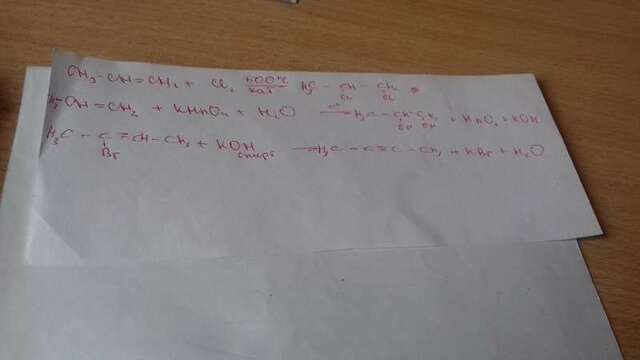 CH3 - CH = CH2 + Cl2 500°C кат H3C - CH - CH2
Cl Cl
H3-CH = CH2 + KMnO4 + H2O → H3C - CH - CH2 + MnO2 + KOH
OH OH
H3C - C = CH - CH3 + KOH спирт → H3C - C ≡ C - CH3 + KBr + H2O
Br